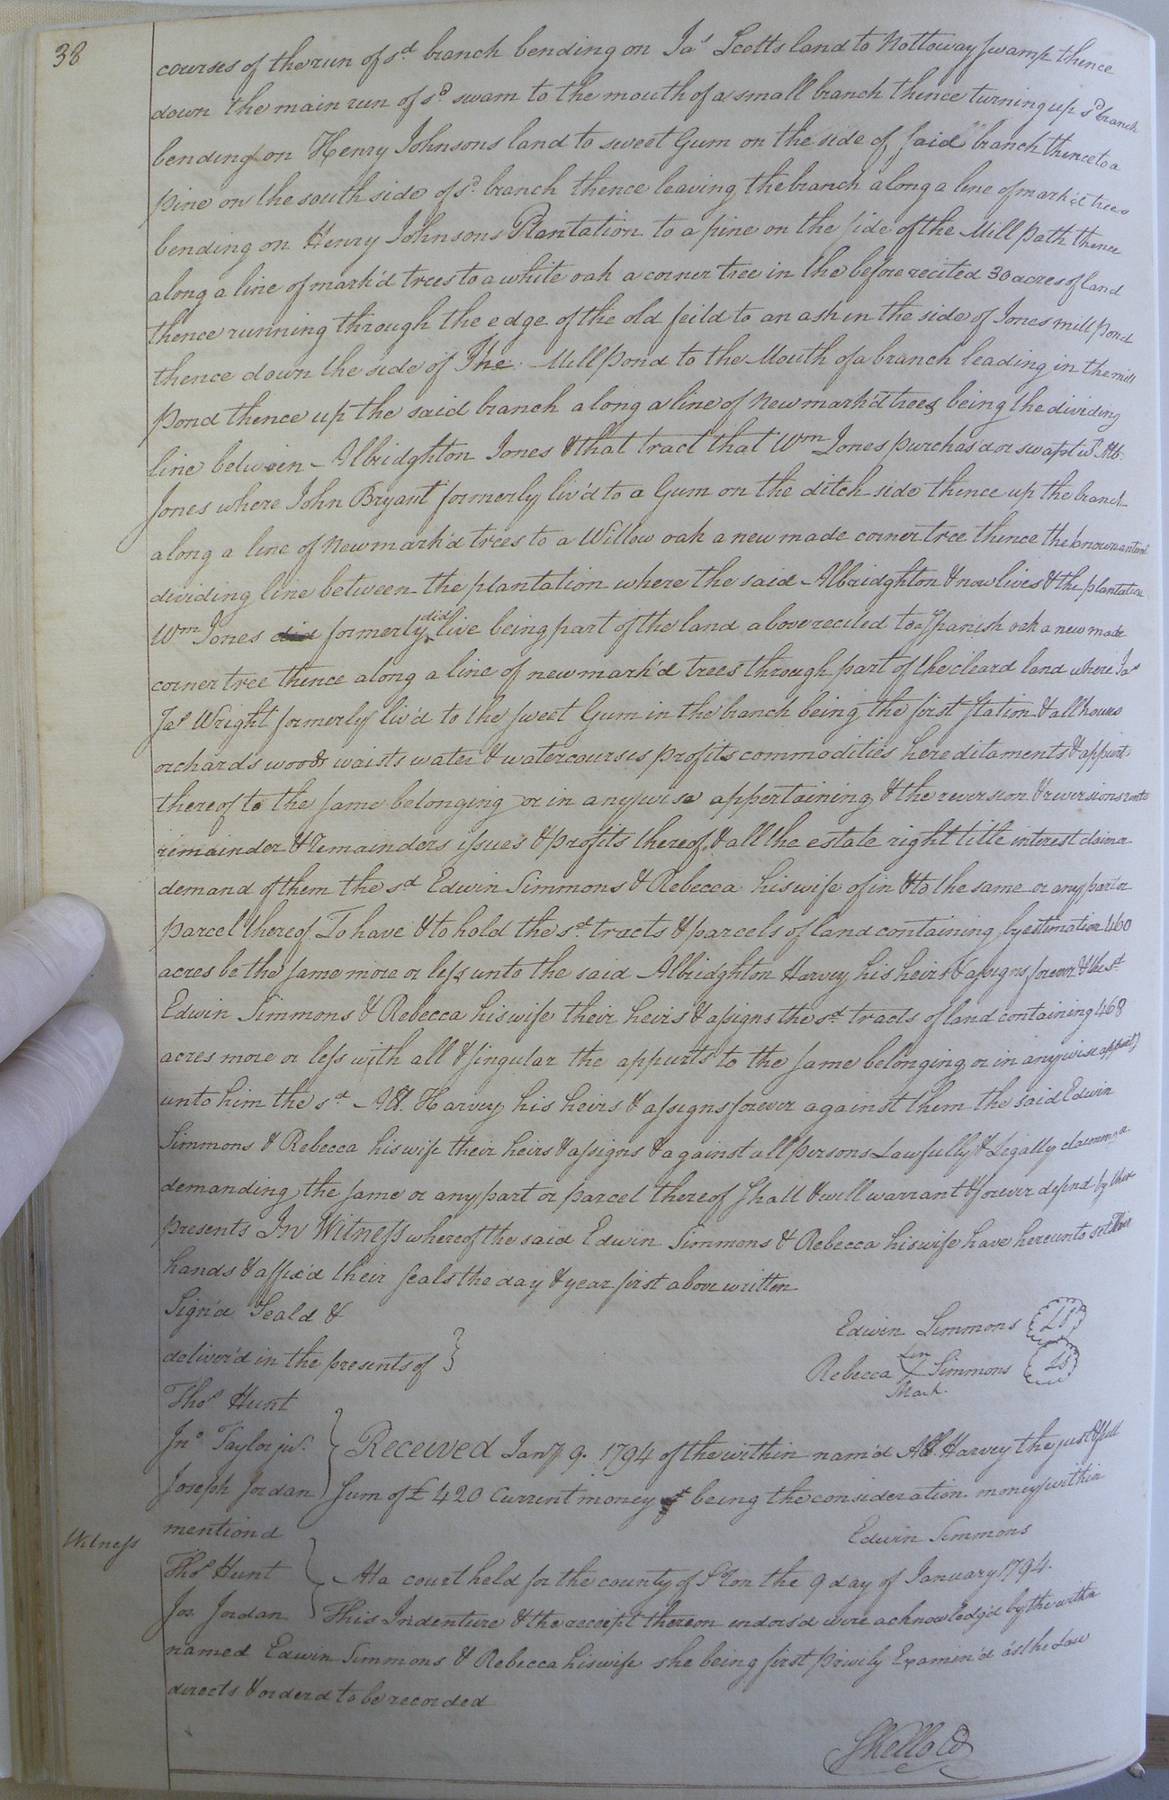 38
courses of the run of sd branch bending on Jas Scotts land to Nottoway swamp thence
down the main run of sd swam to the mouth of a small branch thence turning up sd branch
bending on Henry Johnsons land to sweet Gum on the side of said branch thence to a
pine on the south side of sd branch thence leaving the branch along a line of mark'd trees
bending on Henry Johnsons Plantation to a pine on the side of the Mill path thence
along a line of mark'd trees to a white oak a corner tree in the before recited 30 acres of land
thence running through the edge of the old feild to an ash in the side of Jones mill pond
thence down the side of The Mill pond to the Mouth of a branch leading in the mill
pond thence up the said branch along a line of new mark'd trees being the dividing
line between Albridghton Jones & that tract that Wm Jones purchas'd or swapt wt Alb.
Jones where John Bryant formerly liv'd to a Gum on the ditch side thence up the branch
along a line of new mark'd trees to a Willow oak a new made corner tree thence the known
dividing line between the plantation where the said Albridghton now lives & the plantation
Wm Jones did formerly did live being part of the land above recited to a Spanish oak a new made
corner tree thence along a line of new mark'd trees through part of the cleard land where Jas
Jas Wright formerly liv'd to the sweet Gum in the branch being the first station & all houses
orchards woods waists water & watercourses profits commodities hereditaments & appurt
thereof to the same belonging or in anywise appertaining & the reversion & reversions
remainder & remainders issues & profits thereof & all the estate right title interest claim
demand of them the sd Edwin Simmons & Rebecca his wife of in & to the same or any part or
parcel thereof To have & to hold the sd tracts & parcels of land containing by estimation 460
acres be the same more or less unto the said Albridghton Harvey his heirs & assigns forever & the sd
Edwin Simmons & Rebecca his wife their heirs & assigns the sd tracts of land containing 468
acres more or less with all & singular the appurts to the same belonging or in anywise
unto him the sd Alb. Harvey his heirs & assigns forever against them the said Edwin
Simmons & Rebecca his wife their heirs & assigns & against all persons Lawfully & Legally
demanding the same or any part or parcel thereof shall & will warrant & forever defend by these
presents In Witness whereof the said Edwin Simmons & Rebecca his wife have hereunto set their
hands & affix'd their seals the day & year first above written
Sign'd Seald &
deliver'd in the presents of }
Edwin Simmons LS
Rebecca her X Mark Simmons LS
Thos Hunt
Jno Taylor jur.
Joseph Jordan
Received Jany 9. 1794 of the within nam'd Alb. Harvey the just & full
sum of £ 420 current money being the consideration money within
mentiond
Edwin Simmons
Witness
Thos Hunt
Jos Jordan
At a court held for the county of Soton the 9 day of January 1794.
This Indenture & the receipt thereon endors'd were acknowledg'd by the within
named Edwin Simmons & Rebecca his wife she being first privily Examin'd as the Law
directs & orderd to be recorded